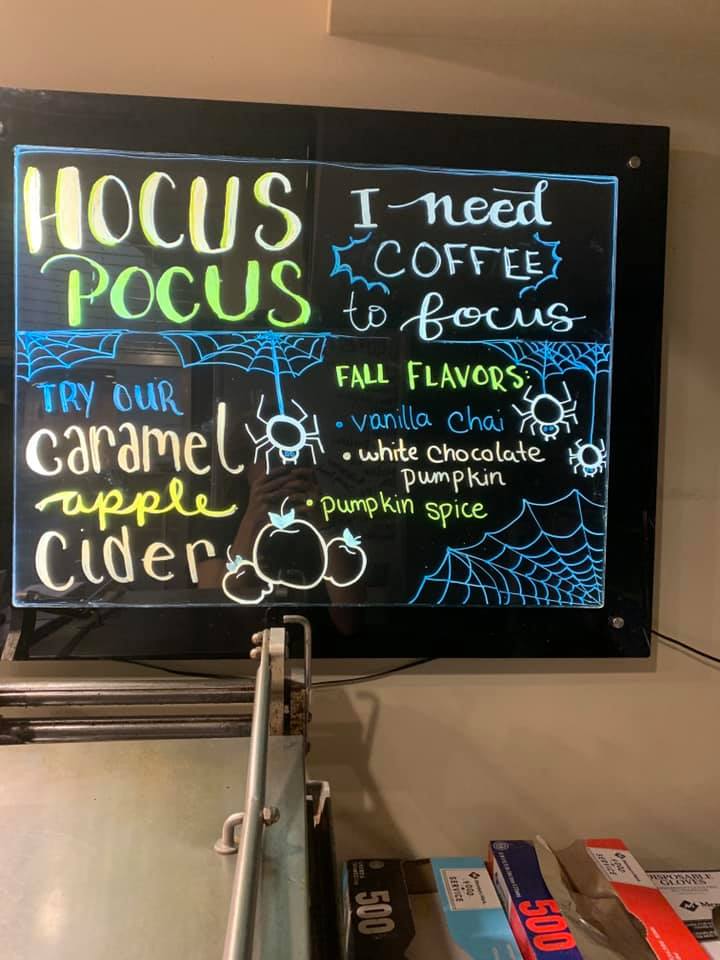 HOCUS
POCUS
I need
COFFEE
to focus
TRY OUR
caramel
apple
cider
FALL FLAVORS:
• vanilla chai
• white chocolate
pumpkin
• pumpkin spice
500
FOOD
SERVICE
500
FOOD
SERVICE
DISPOSABLE
GLOVES